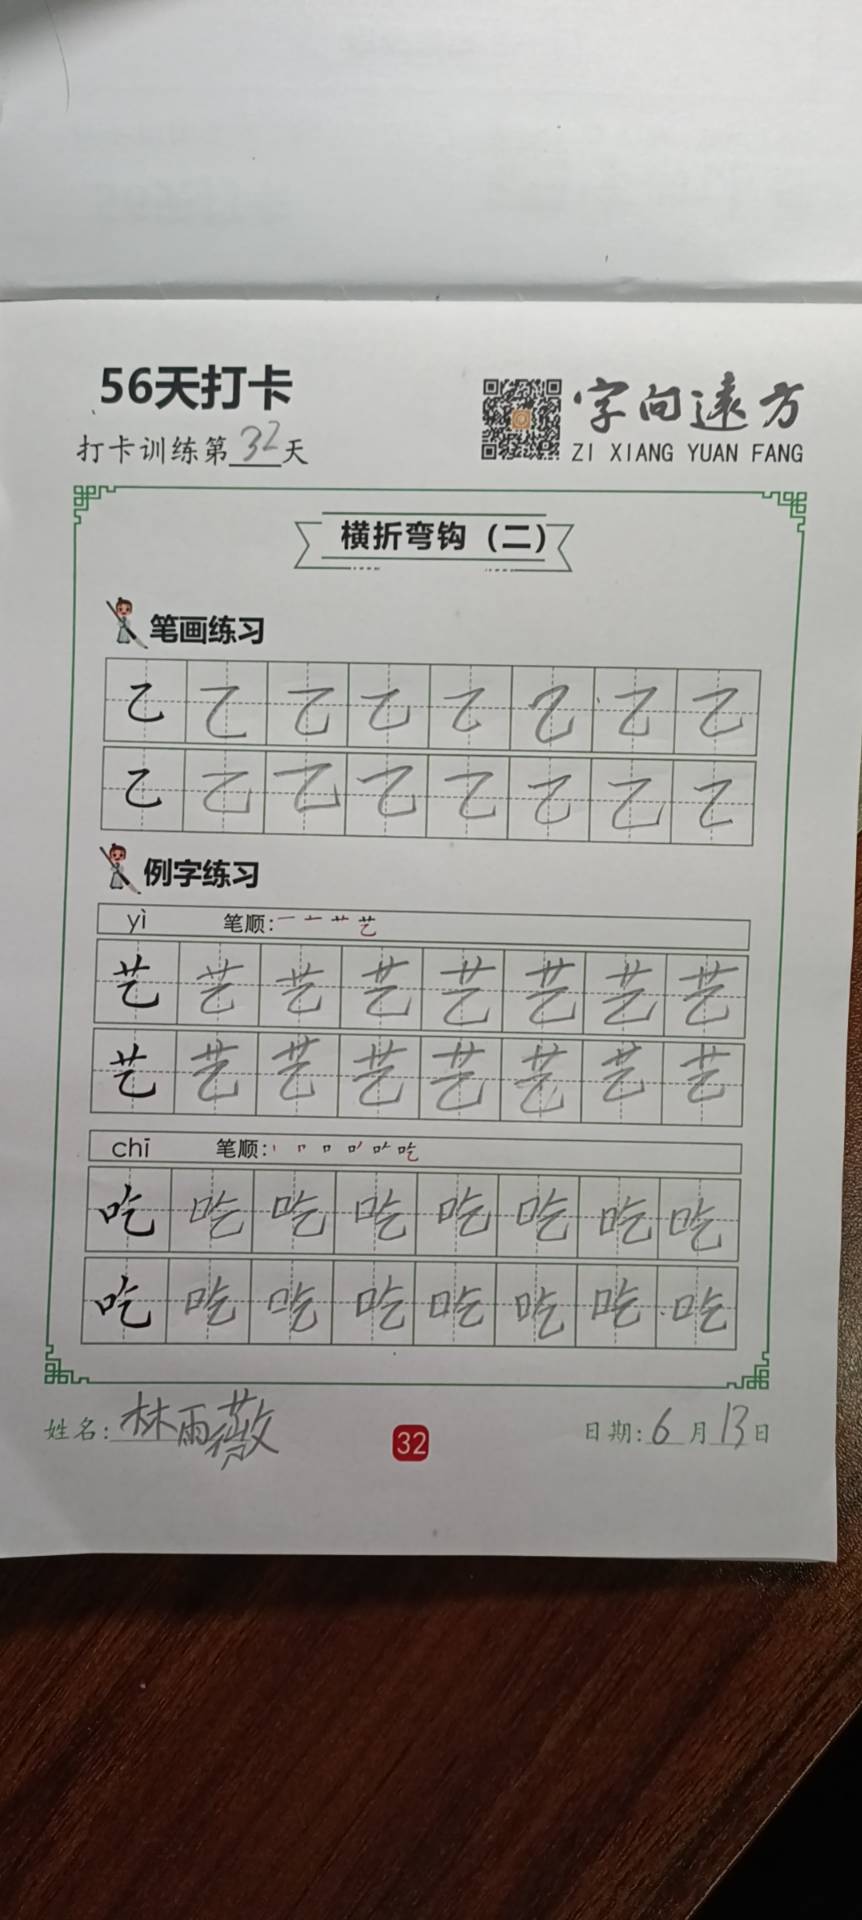 56天打卡
打卡训练第32天
字向遠方
ZI XIANG YUAN FANG
横折弯钩（二）
笔画练习
乙 乙 乙 乙 乙 乙 乙 乙
乙 乙 乙 乙 乙 乙 乙 乙
例字练习
yì 笔顺:一 十 艹 艺
艺 艺 艺 艺 艺 艺 艺 艺
艺 艺 艺 艺 艺 艺 艺 艺
chī 笔顺:丨 𠃍 口 吃
吃 吃 吃 吃 吃 吃 吃 吃
吃 吃 吃 吃 吃 吃 吃 吃
姓名:林雨薇
32
日期:6月13日